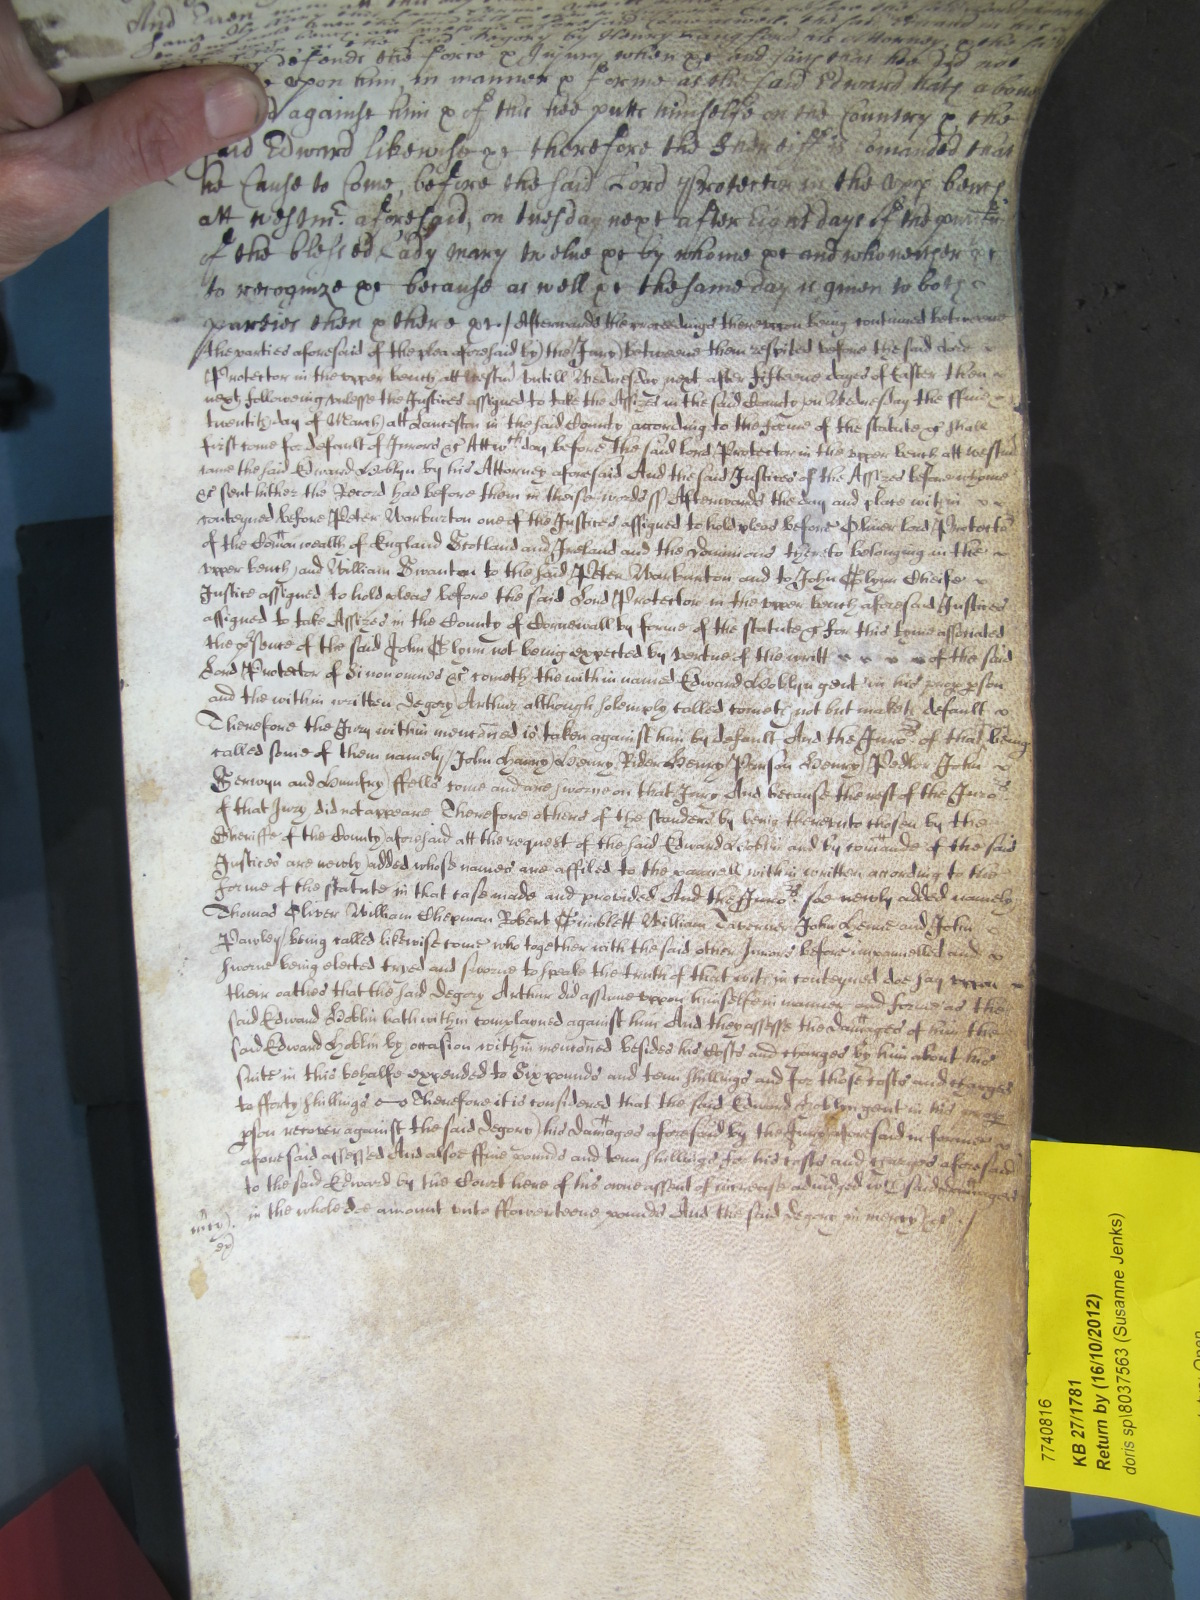 And
by Henry Langford his Attorney
defends the force & Injury when &c and saith that hee did not
upon him, in manner & forme as the said Edward hath above
against him & of this hee putts himselfe on the Country & the
said Edward likewise &c therefore the Shereiffe is comanded that
he Cause to Come, before the said Lord Protector in the upp bench
att Westmr. aforesaid, on tuesday next after Eight days of the
of the blessed Lady Mary twelve &c by whome &c and who neither &c
to recognize &c because as well &c the same day is given to both
parties then & there &c / Afterwards the proceedings thereupon being continued betweene
the parties aforesaid of the plea aforesaid by the Jury betweene them respited before the said Lord
Protector in the upper bench att Westmr untill Wednesday next after fifteene dayes of Easter then
next following unlesse the Justices assigned to take the Assizes in the said County on Wednesday the
twentith day of March att Lanceston in the said County according to the forme of the statute &c shall
first come for default of Jurors &c Att wch day before the said lord Protector in the upper bench att Westmr
came the said Edward Hoblyn by his Attorney aforesaid And the said Justices of the Assizes before whome
&c sent hither the Record had before them in theise words ss Afterwards the day and place within
conteyned before Peter Warburton one of the Justices assigned to hold pleas before Oliver Lord Protector
of the Comonwealth of England Scotland and Ireland and the dominions thereto belonging in the
upper bench and William Swanton to the said Peter Warburton and to John Glynn Cheife
Justice assigned to hold pleas before the said Lord Protector in the upper bench aforesaid Justices
assigned to take Assizes in the County of Cornewall by forme of the statute &c for this tyme associated
the psence of the said John Glynn not being expected by vertue of the writt of the said
Lord Protector of Si non omnes &c cometh the within named Edward Hoblyn gent in his proper pson
and the within written Degory Arthur although solemply called cometh not but maketh default
Therefore the Jury within mencioned is taken against him by default And the Jurors of that Jury being
called some of them namely John Henry Rider Henry Pearson Henry Pedlor John
and Humfry ffells come and are sworne on that Jury And because the rest of the Jurors
of that Jury did not appeare Therefore others of the standers by being thereunto chosen by the
Sheriffe of the County aforesaid att the request of the said Edward Hoblin and by comande of the said
Justices are newly added whose names are affiled to the pannell within written according to the
forme of the statute in that case made and provided And the Jurors soe newly added namely
Thomas Oliver William Chepman Robert Gimblett William Taverner John and John
Pawley being called likewise come who together with the said other Jurors before impannelled and
sworne being elected tryed and sworne to speake the truth of that within conteyned doe say uppon
their oathes that the said Degory Arthur did assume uppon himselfe in manner and forme as the
said Edward Hoblin hath within complayned against him And they assesse the damages of him the
said Edward Hoblin by occasion within mencioned besides his Costs and charges by him about his
suite in this behalfe expended to Six pounds and tenn shillings and for those costs and charges
to fforty shillings Therefore it is considered that the said Edward Hoblyn gent in his proper
pson recover against the said Degory his damages aforesaid by the Jury aforesaid in forme
aforesaid assessed And alsoe ffive pounds and tenn shillings for his costs and charges aforesaid
to the said Edward by the Court here of his owne assent of increase adiudged wch said damages
in the whole doe amount unto ffowerteene pounds And the said Degory in mercy &c /
mcy
7740816
KB 27/1781
Return by (16/10/2012)
doris sp\8037563 (Susanne Jenks)
Open